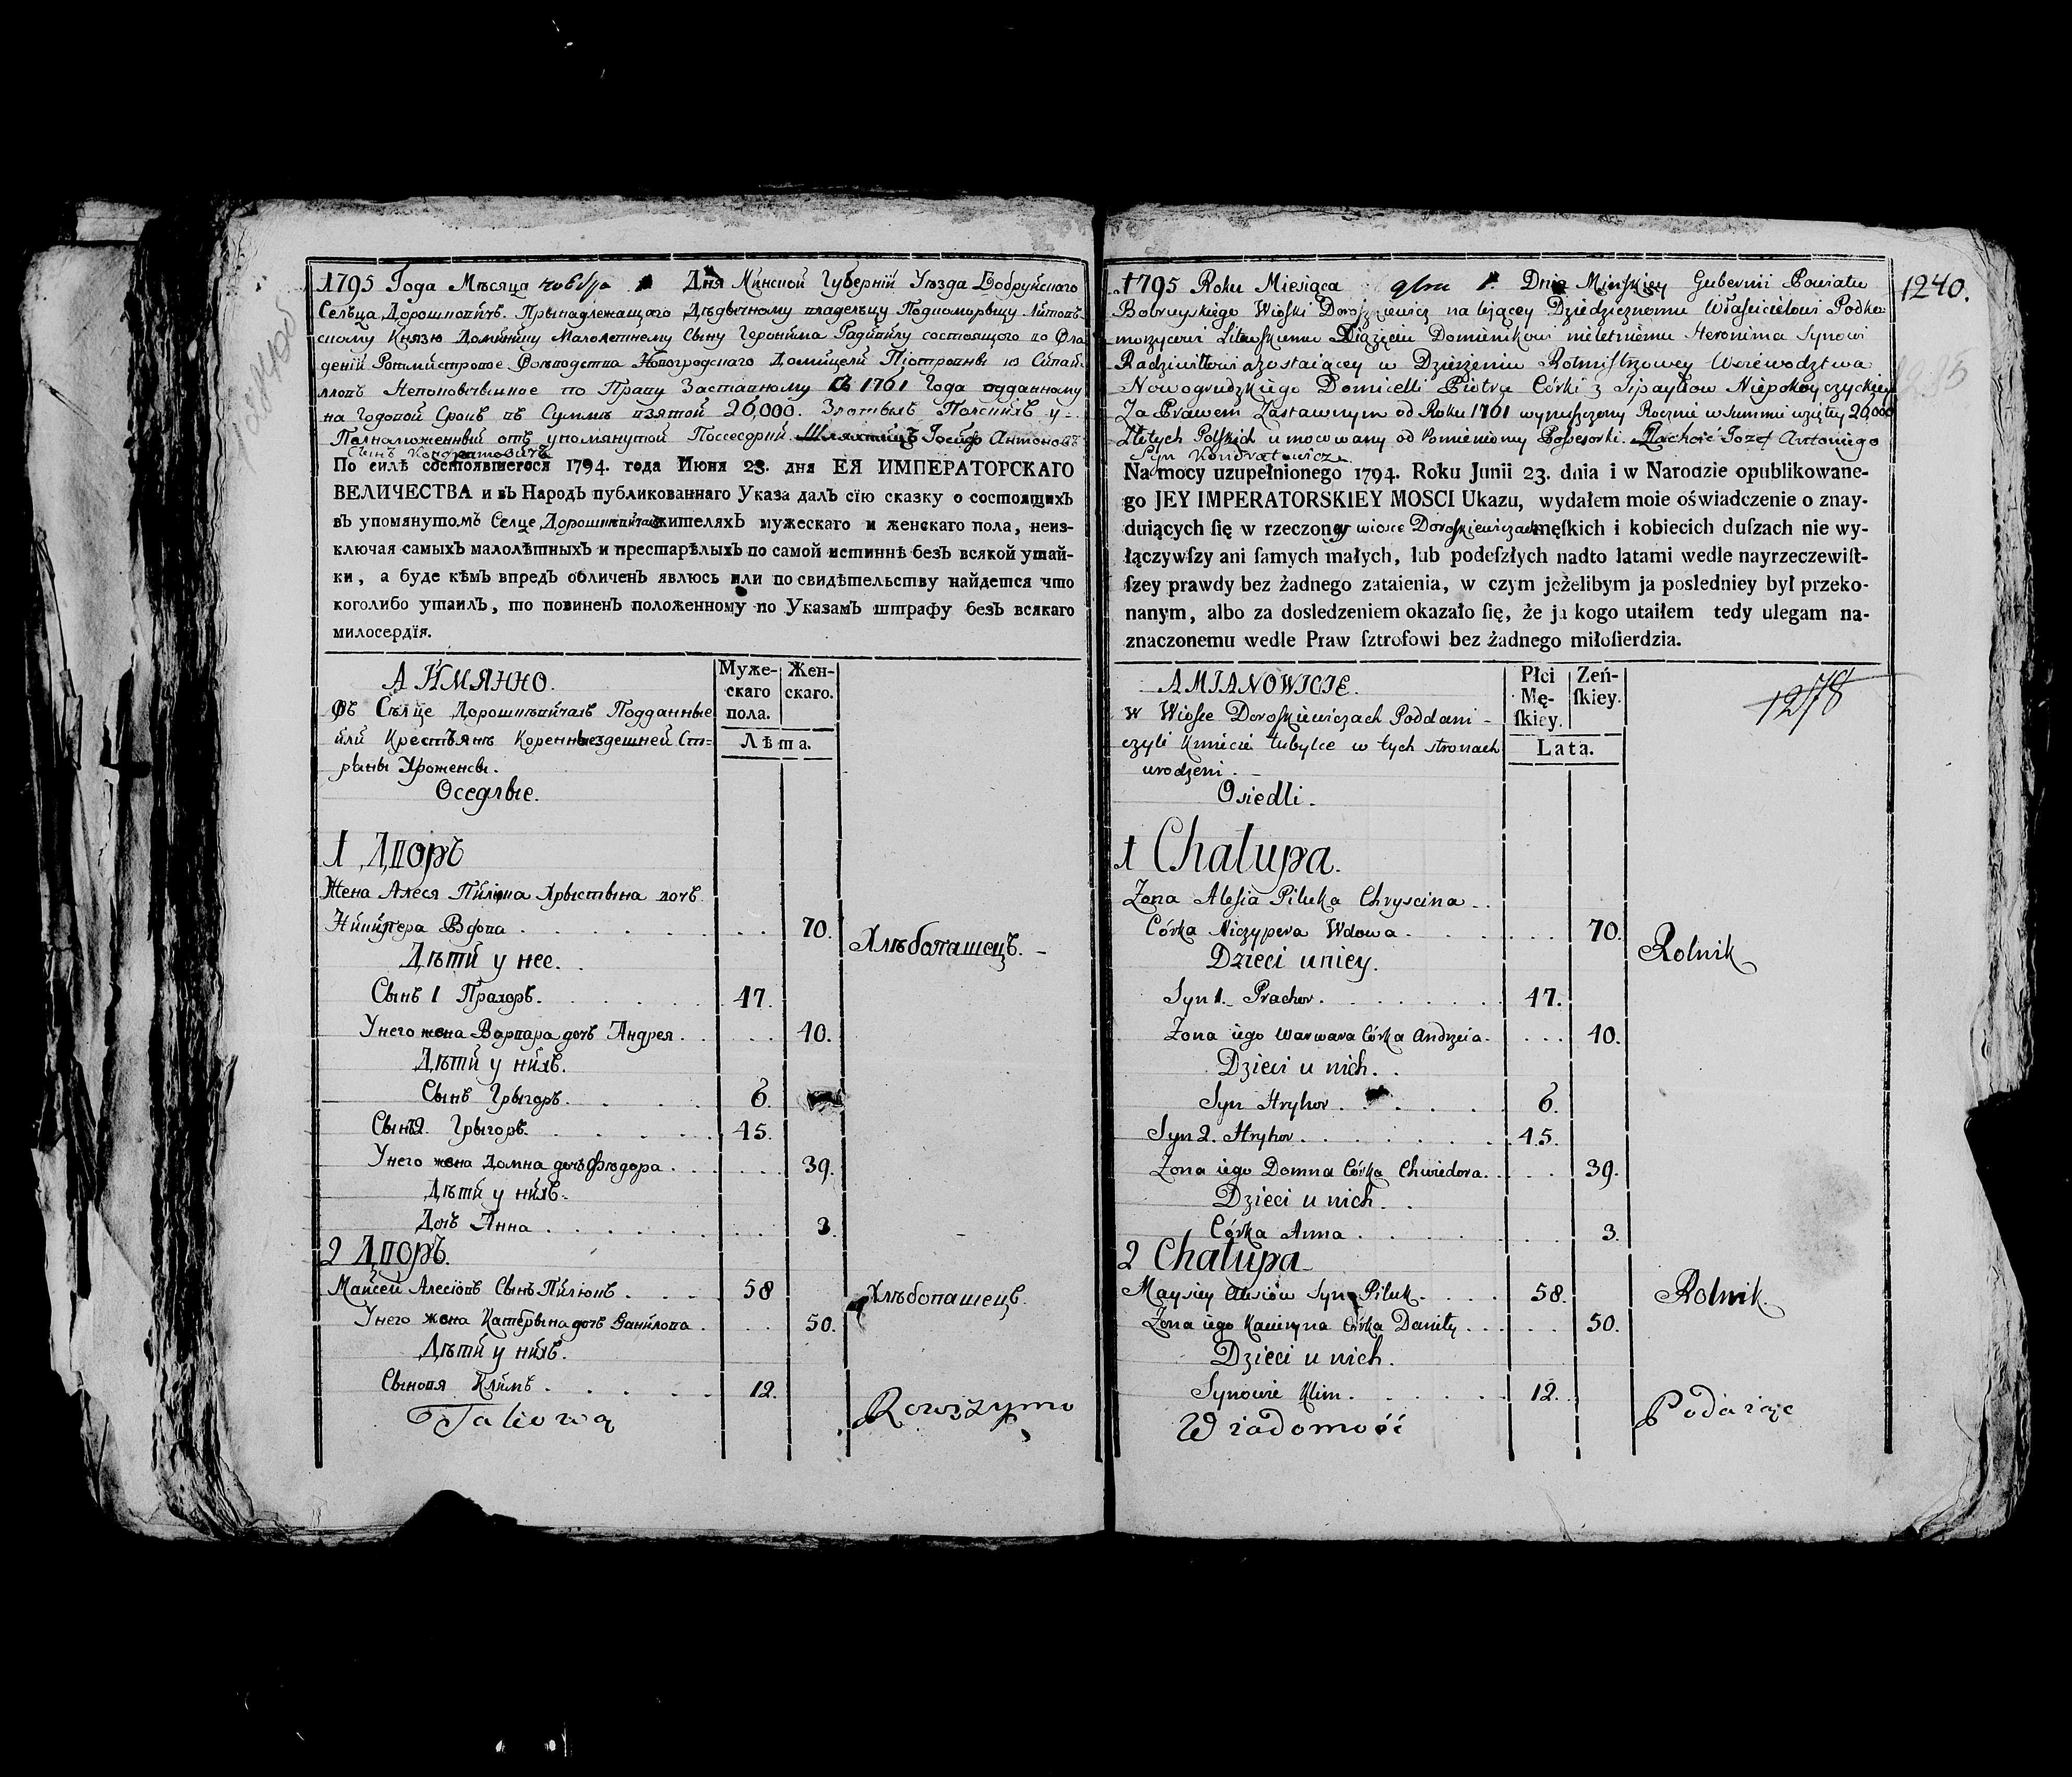 1795 Года Мѣсяца ноября 1 Дня Минской Губерніи Уѣзда Бобруйскаго
Сельца Дорошковичъ. Прынадлежащаго Дѣдычному владельцу Подкоморъщу Литовъ-
скому Князю Доминику Малолетнему Сыну Геронима Радивилу состоящого во Вла
деніи Ротмистровое Воеводства Новогродскаго Домицели Піотровны из Сипай-
лловъ Непокойчицкое по Праву Заставному съ 1761 Года отданному
на Годовой Срокъ въ Суммъ взятой 26,000. Злотыхъ Полскихъ у-
Полномоченный отъ упомянутой Поссесорки Шляхтицъ Іосифъ Антоновъ
Сынъ Кондратовичъ
По силѣ состоявшегося 1794. года Июня 23. дня ЕЯ ИМПЕРАТОРСКАГО
ВЕЛИЧЕСТВА и въ Народъ публикованнаго Указа далъ сїю сказку о состоящихъ
въ упомянутомъ Селце Дорошкевичахъ жителяхъ мужескаго и женскаго пола, неиз-
ключая самыхъ малолѣтныхъ и престарѣлыхъ по самой истиннѣ безъ всякой утай-
ки, а буде кѣмъ впредъ обличенъ явлюсь или по свидѣтельству найдется что
коголибо утаилъ, то повиненъ положенному по Указамъ штрафу безъ всякаго
милосердїя.
А ИМЯННО.
Муже-
скаго
пола.
Жен-
скаго.
Лѣта.
Въ Селце Дорошкевичахъ Подданные
или Крестьянъ Коренные здешней Ст-
раны Уроженсы.
Оседлые.
1 Дворъ
Жена Алеся Пилюка Хрыстына дочъ
Ничипера Вдова . . . 70. Хлѣбопашецъ.
Дѣти у нее.
Сынъ 1 Прахоръ. . . . 47.
У него жена Варвара дочъ Андрея. . . 40.
Дѣти у нихъ.
Сынъ Грыгоръ. . . . 6.
Сынъ 2. Грыгоръ. . . . 45.
У него жена Домна дочъ Фѣдора . . . 39.
Дѣти у нихъ.
Дочъ Анна . . . 3.
2 Дворъ.
Майсей Алесіовъ Сынъ Пилюкъ . . . 58 Хлѣбопашецъ.
У него жена Катерына дочъ Данилова . . . 50.
Дѣти у нихъ.
Сыновя Климъ . . . 12.
Takową Rewizyino
1795 Roku Miesiąca 9bra 1. Dnia Minſkiey Gubernii Powiatu
Bobruyskiego Wioſki Doroszkiewicz należącey Dziedzicznemu Właścicielowi Podko
morzycowi Litewſkiemu Xiążęciu Dominikowi nieletniemu Heronima Synowi
Radziwiłłowi a zostaiącey w Dzierżeniu Rotmiſtrzowey Woiewodztwa
Nowogrudzkiego Domicelli Piotra Córki z Sipayłow Niepokoyczyckiey
Za Prawem Zastawnym od Roku 1761 wypuſzczony Rocznie w Summie wziętey 26,000
Złotych Polſkich umocowany od Pomienioney Poſseſorki. Szlachcic Jozef Antoniego
Syn Kondratowicz
Na mocy uzupełnionego 1794. Roku Junii 23. dnia i w Narodzie opublikowane-
go JEY IMPERATORSKIEY MOSCI Ukazu, wydałem moie oświadczenie o znay-
duiących ſię w rzeczoney wiosce Doroſkiewiczach męſkich i kobiecich duſzach nie wy-
łączywſzy ani ſamych małych, lub podeſzłych nadto latami wedle nayrzeczewiſt-
ſzey prawdy bez żadnego zataienia, w czym jeżelibym ja posledniey był przeko-
nanym, albo za dosledzeniem okazało ſię, że ja kogo utaiłem tedy ulegam na-
znaczonemu wedle Praw ſztrofowi bez żadnego miłoſierdzia.
1240.
A MIANOWICIE.
Płci
Mę-
ſkiey.
Żeń-
ſkiey.
Lata.
1278
w Wiosce Doroſkiewiczach Poddani -
czyli Kmiecie tubylce w tych stronach
urodzeni.
Osiedli.
1 Chałupa.
Żona Alesia Piluka Chryscina
Córka Niczypera Wdowa . . . 70. Rolnik
Dzieci u niey.
Syn 1. Prachor . . . 47.
Żona iego Warwara Córka Andrzeia . . . 40.
Dzieci u nich.
Syn Hryhor . . . 6.
Syn 2. Hryhor . . . 45.
Żona iego Domna Córka Chwiedora . . . 39.
Dzieci u nich.
Córka Anna . . . 3.
2 Chałupa
Maysiey Alesiów Syn Piluk . . . 58. Rolnik.
Żona iego Kacieryna Córka Daniły . . . 50.
Dzieci u nich.
Synowie Klim . . . 12.
Wiadomość Podaiąc